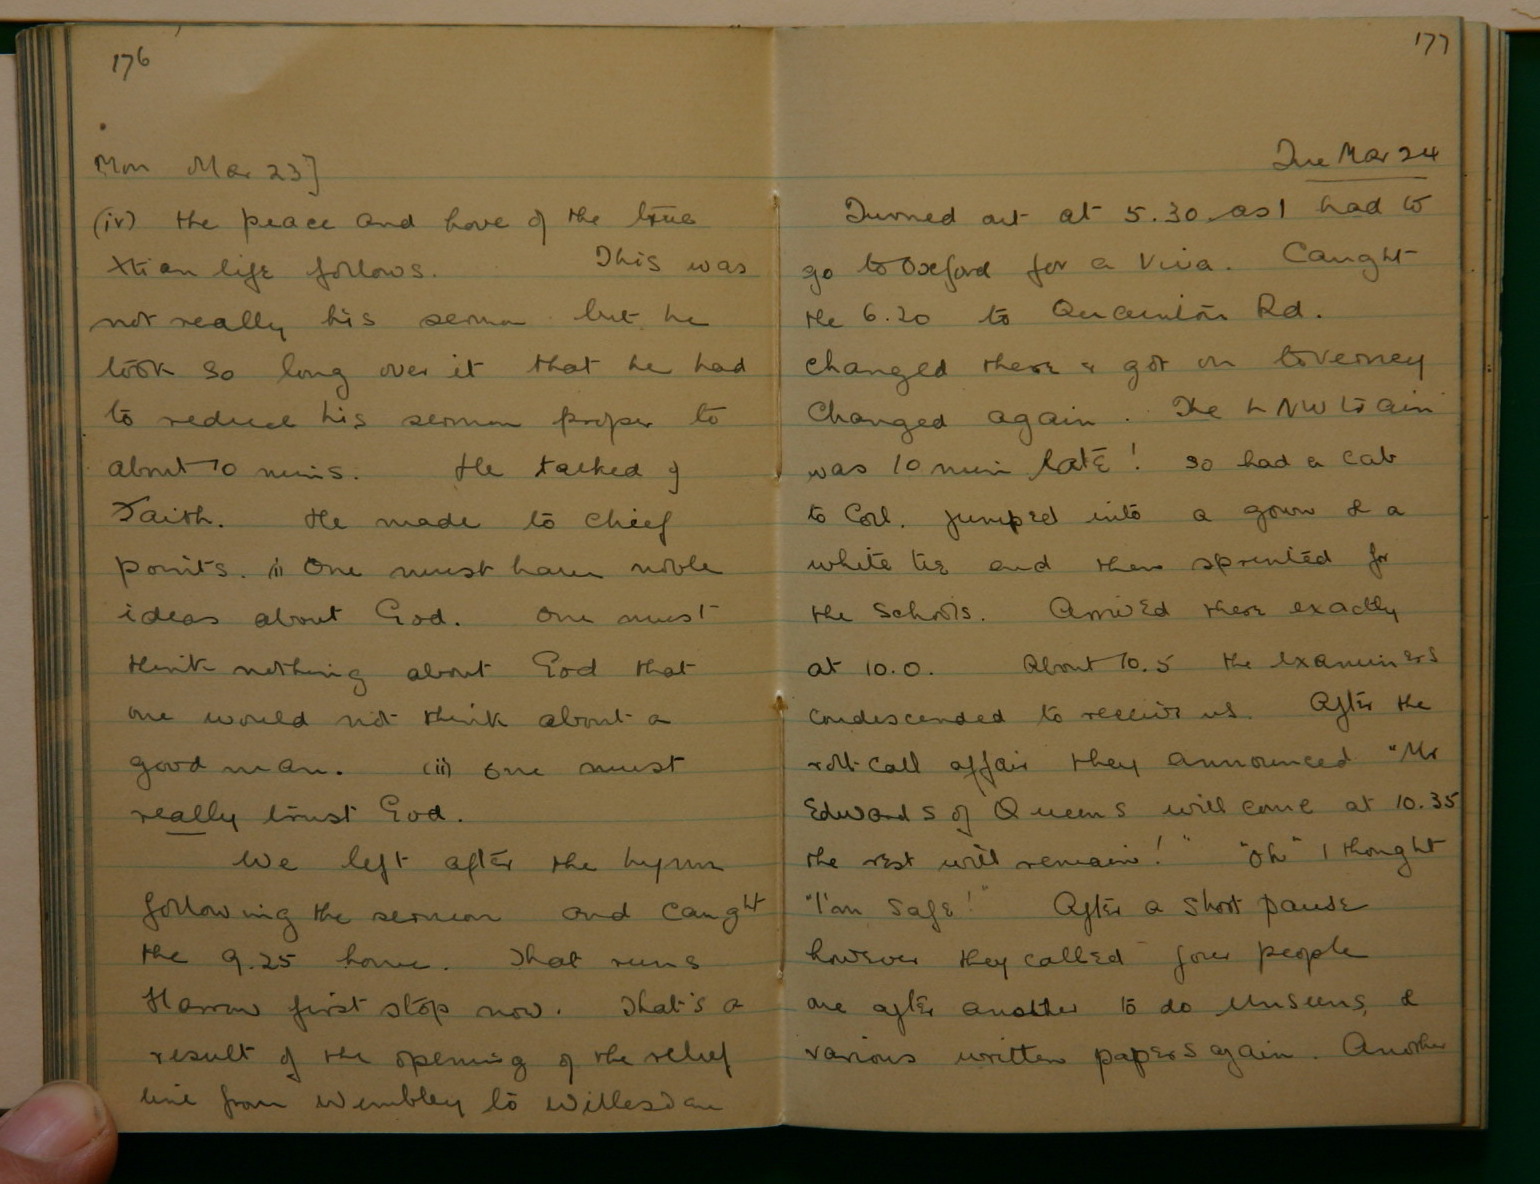 176
Mon Mar 23]
(iv) the peace and love of the true
Xtian life follows. This was
not really his sermon but he
took so long over it that he had
to reduce his sermon proper to
about 10 mins. He talked of
Faith. He made to chief
points. (i) One must have noble
ideas about God. One must
think nothing about God that
one would not think about a
good man. (ii) One must
really trust God.
We left after the hymn
following the sermon and caught
the 9.25 home. That runs
Harrow first stop now. That's a
result of the opening of the relief
line from Wembley to Willesdan
177
Tue Mar 24
Turned out at 5.30 as I had to
go to Oxford for a Viva. Caught
the 6.20 to Quainton Rd.
changed there & got on to Verney
Changed again. The L NW train
was 10 min late! so had a cab
to Coll. jumped into a gown & a
white tie and then sprinted for
the Schools. Arrived there exactly
at 10.0. About 10.5 the examiners
condescended to receive us. After the
roll-call affair they announced "Mr
Edwards of Queens will come at 10.35
the rest will remain!" "Oh" I thought
"I'm safe!" After a short pause
however they called four people
one after another to do unseens, &
various written papers again. Another